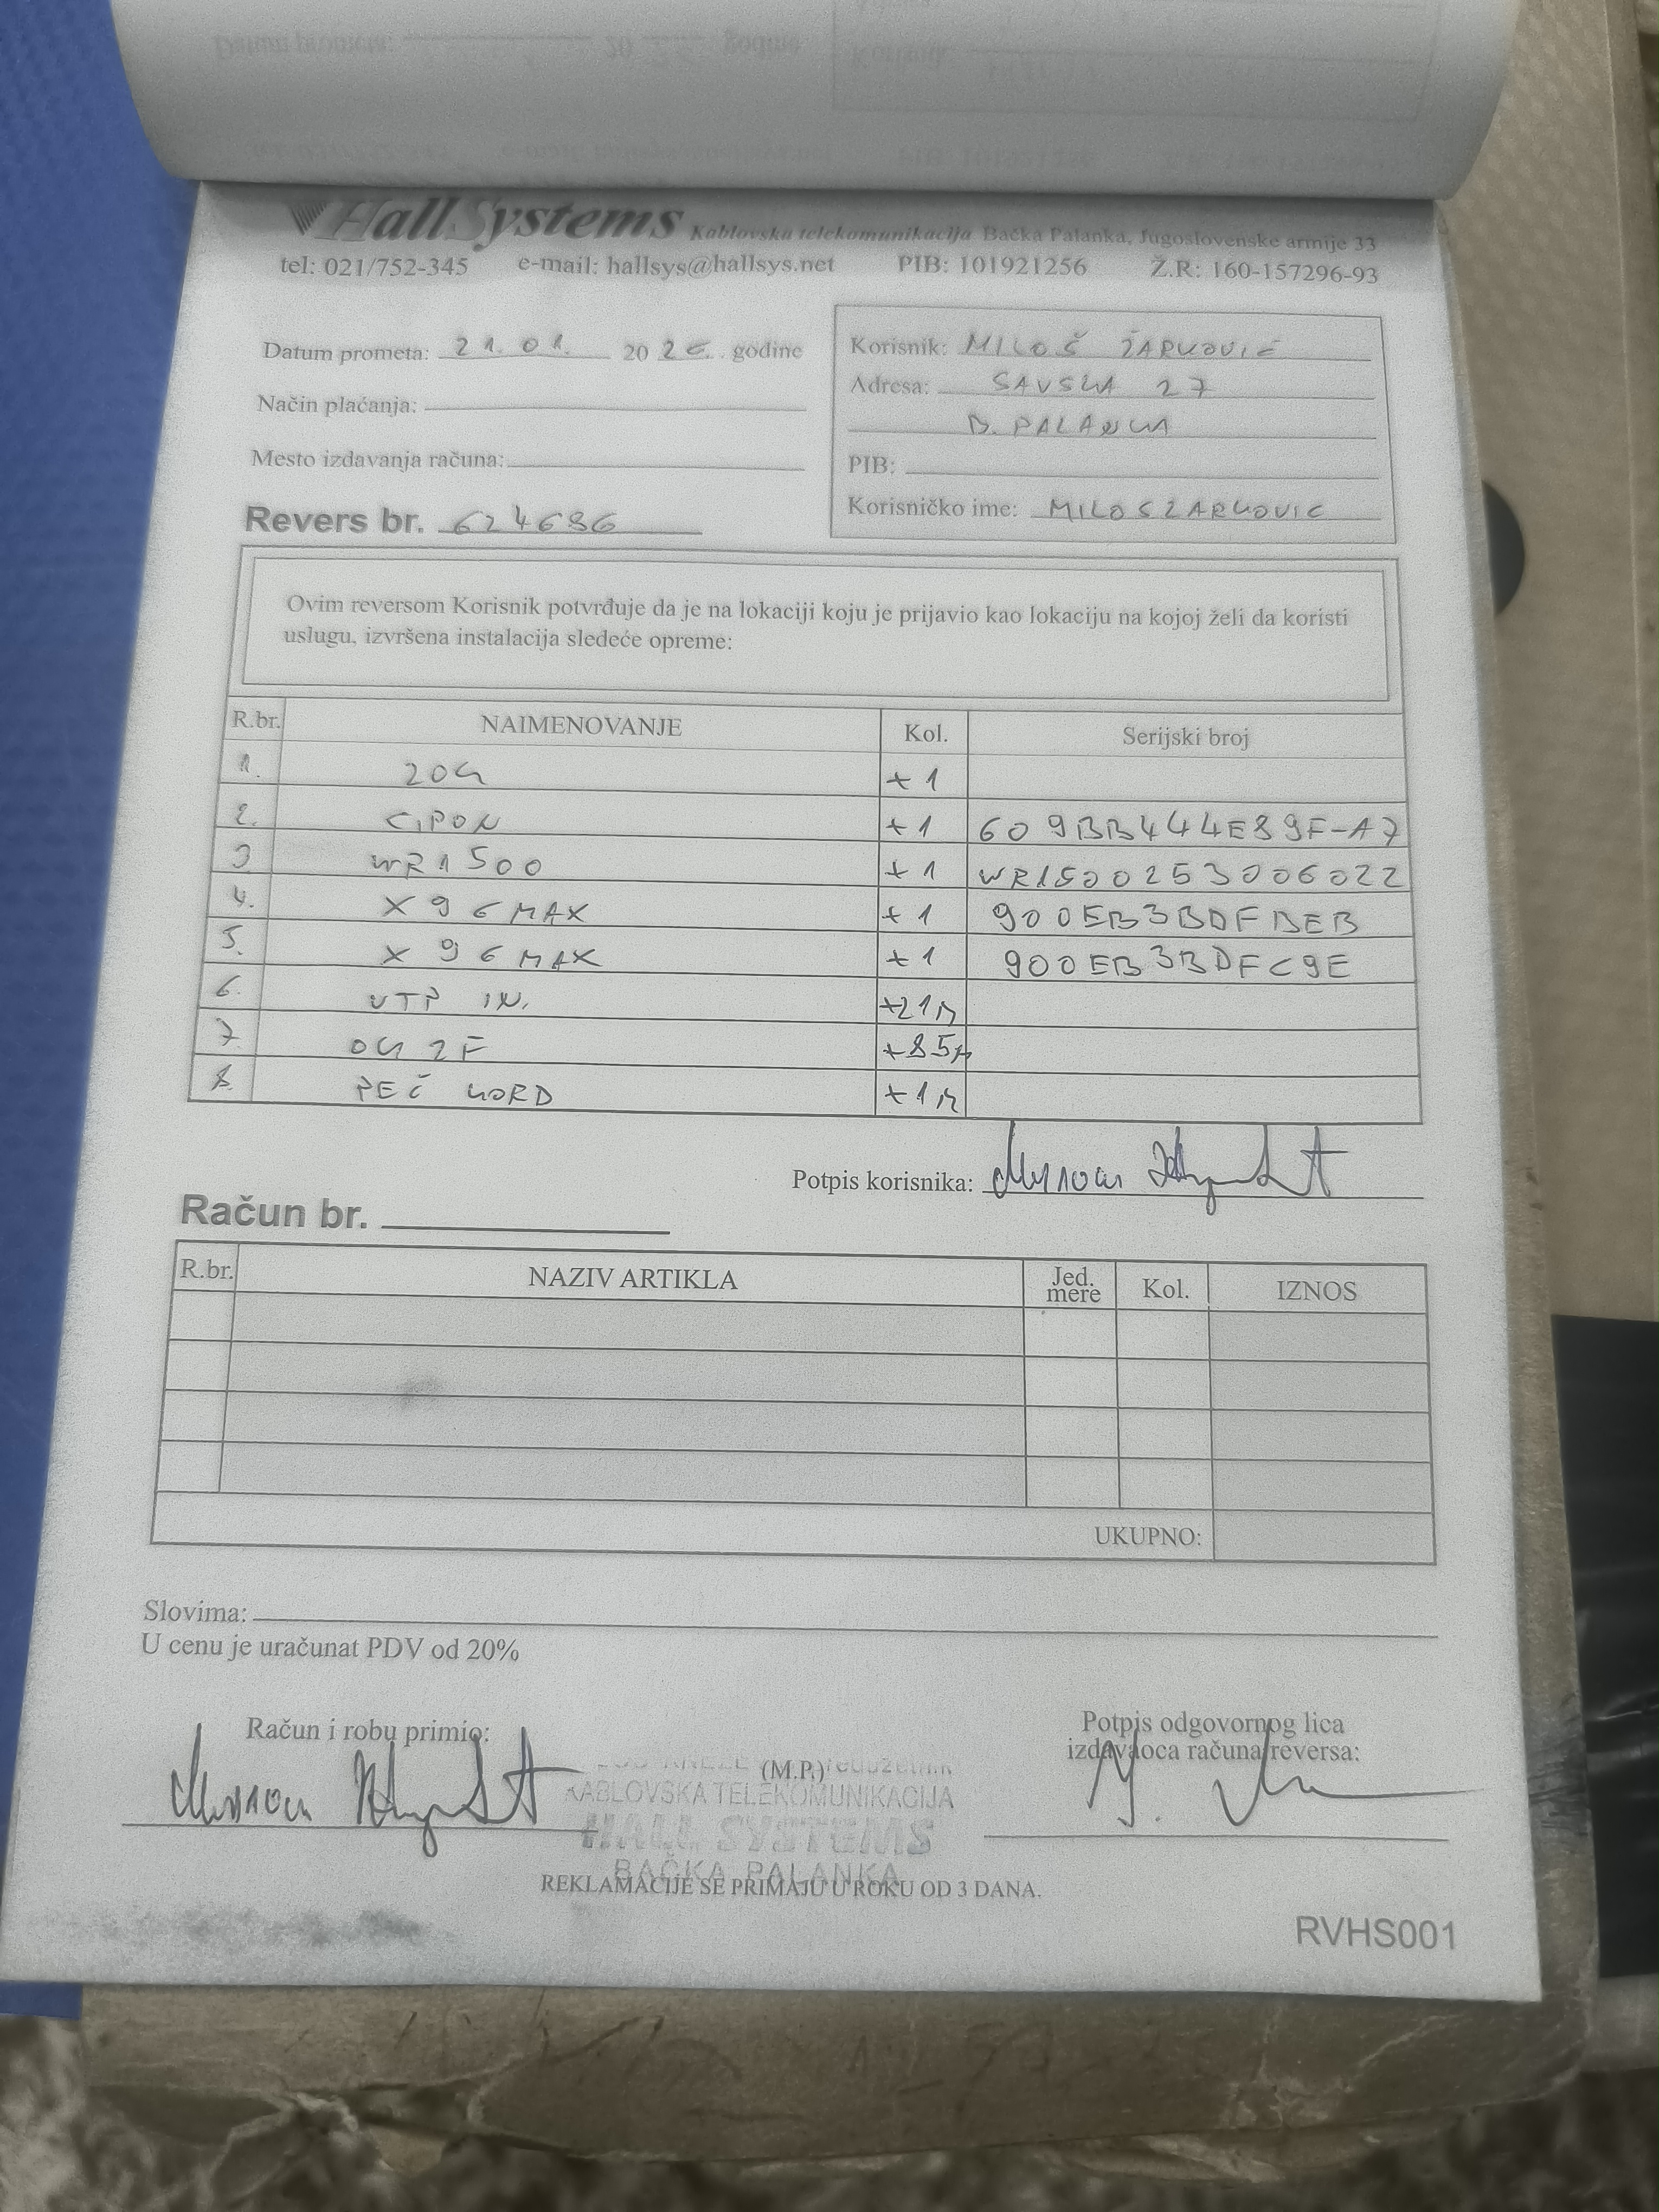 HallSystems Kablovska telekomunikacija Bačka Palanka, Jugoslovenske armije 33
tel: 021/752-345 e-mail: hallsys@hallsys.net PIB: 101921256 Ž.R: 160-157296-93
Datum prometa: 21.01. 2026. godine
Način plaćanja:
Mesto izdavanja računa:
Revers br. 624686
Korisnik: MILOŠ ŽARKOVIĆ
Adresa: SAVSKA 27
B. PALANKA
PIB:
Korisničko ime: MILOSZARKOVIC
Ovim reversom Korisnik potvrđuje da je na lokaciji koju je prijavio kao lokaciju na kojoj želi da koristi
uslugu, izvršena instalacija sledeće opreme:
R.br. NAIMENOVANJE Kol. Serijski broj
1. ZOK +1
2. GPON +1 609BB444E89F-A7
3 WR1500 +1 WR1500253006022
4. X96MAX +1 900EB3BDFBEB
5. X96MAX +1 900EB3BDFC9E
6. UTP IN. +21m
7 OK 2F +85m
8. PEČ KORD +1m
Potpis korisnika:
Račun br.
R.br. NAZIV ARTIKLA Jed. mere Kol. IZNOS
UKUPNO:
Slovima:
U cenu je uračunat PDV od 20%
Račun i robu primio:
(M.P.)
Potpis odgovornog lica
izdavaoca računa/reversa:
KABLOVSKA TELEKOMUNIKACIJA
HALL SYSTEMS
BAČKA PALANKA
REKLAMACIJE SE PRIMAJU U ROKU OD 3 DANA.
RVHS001